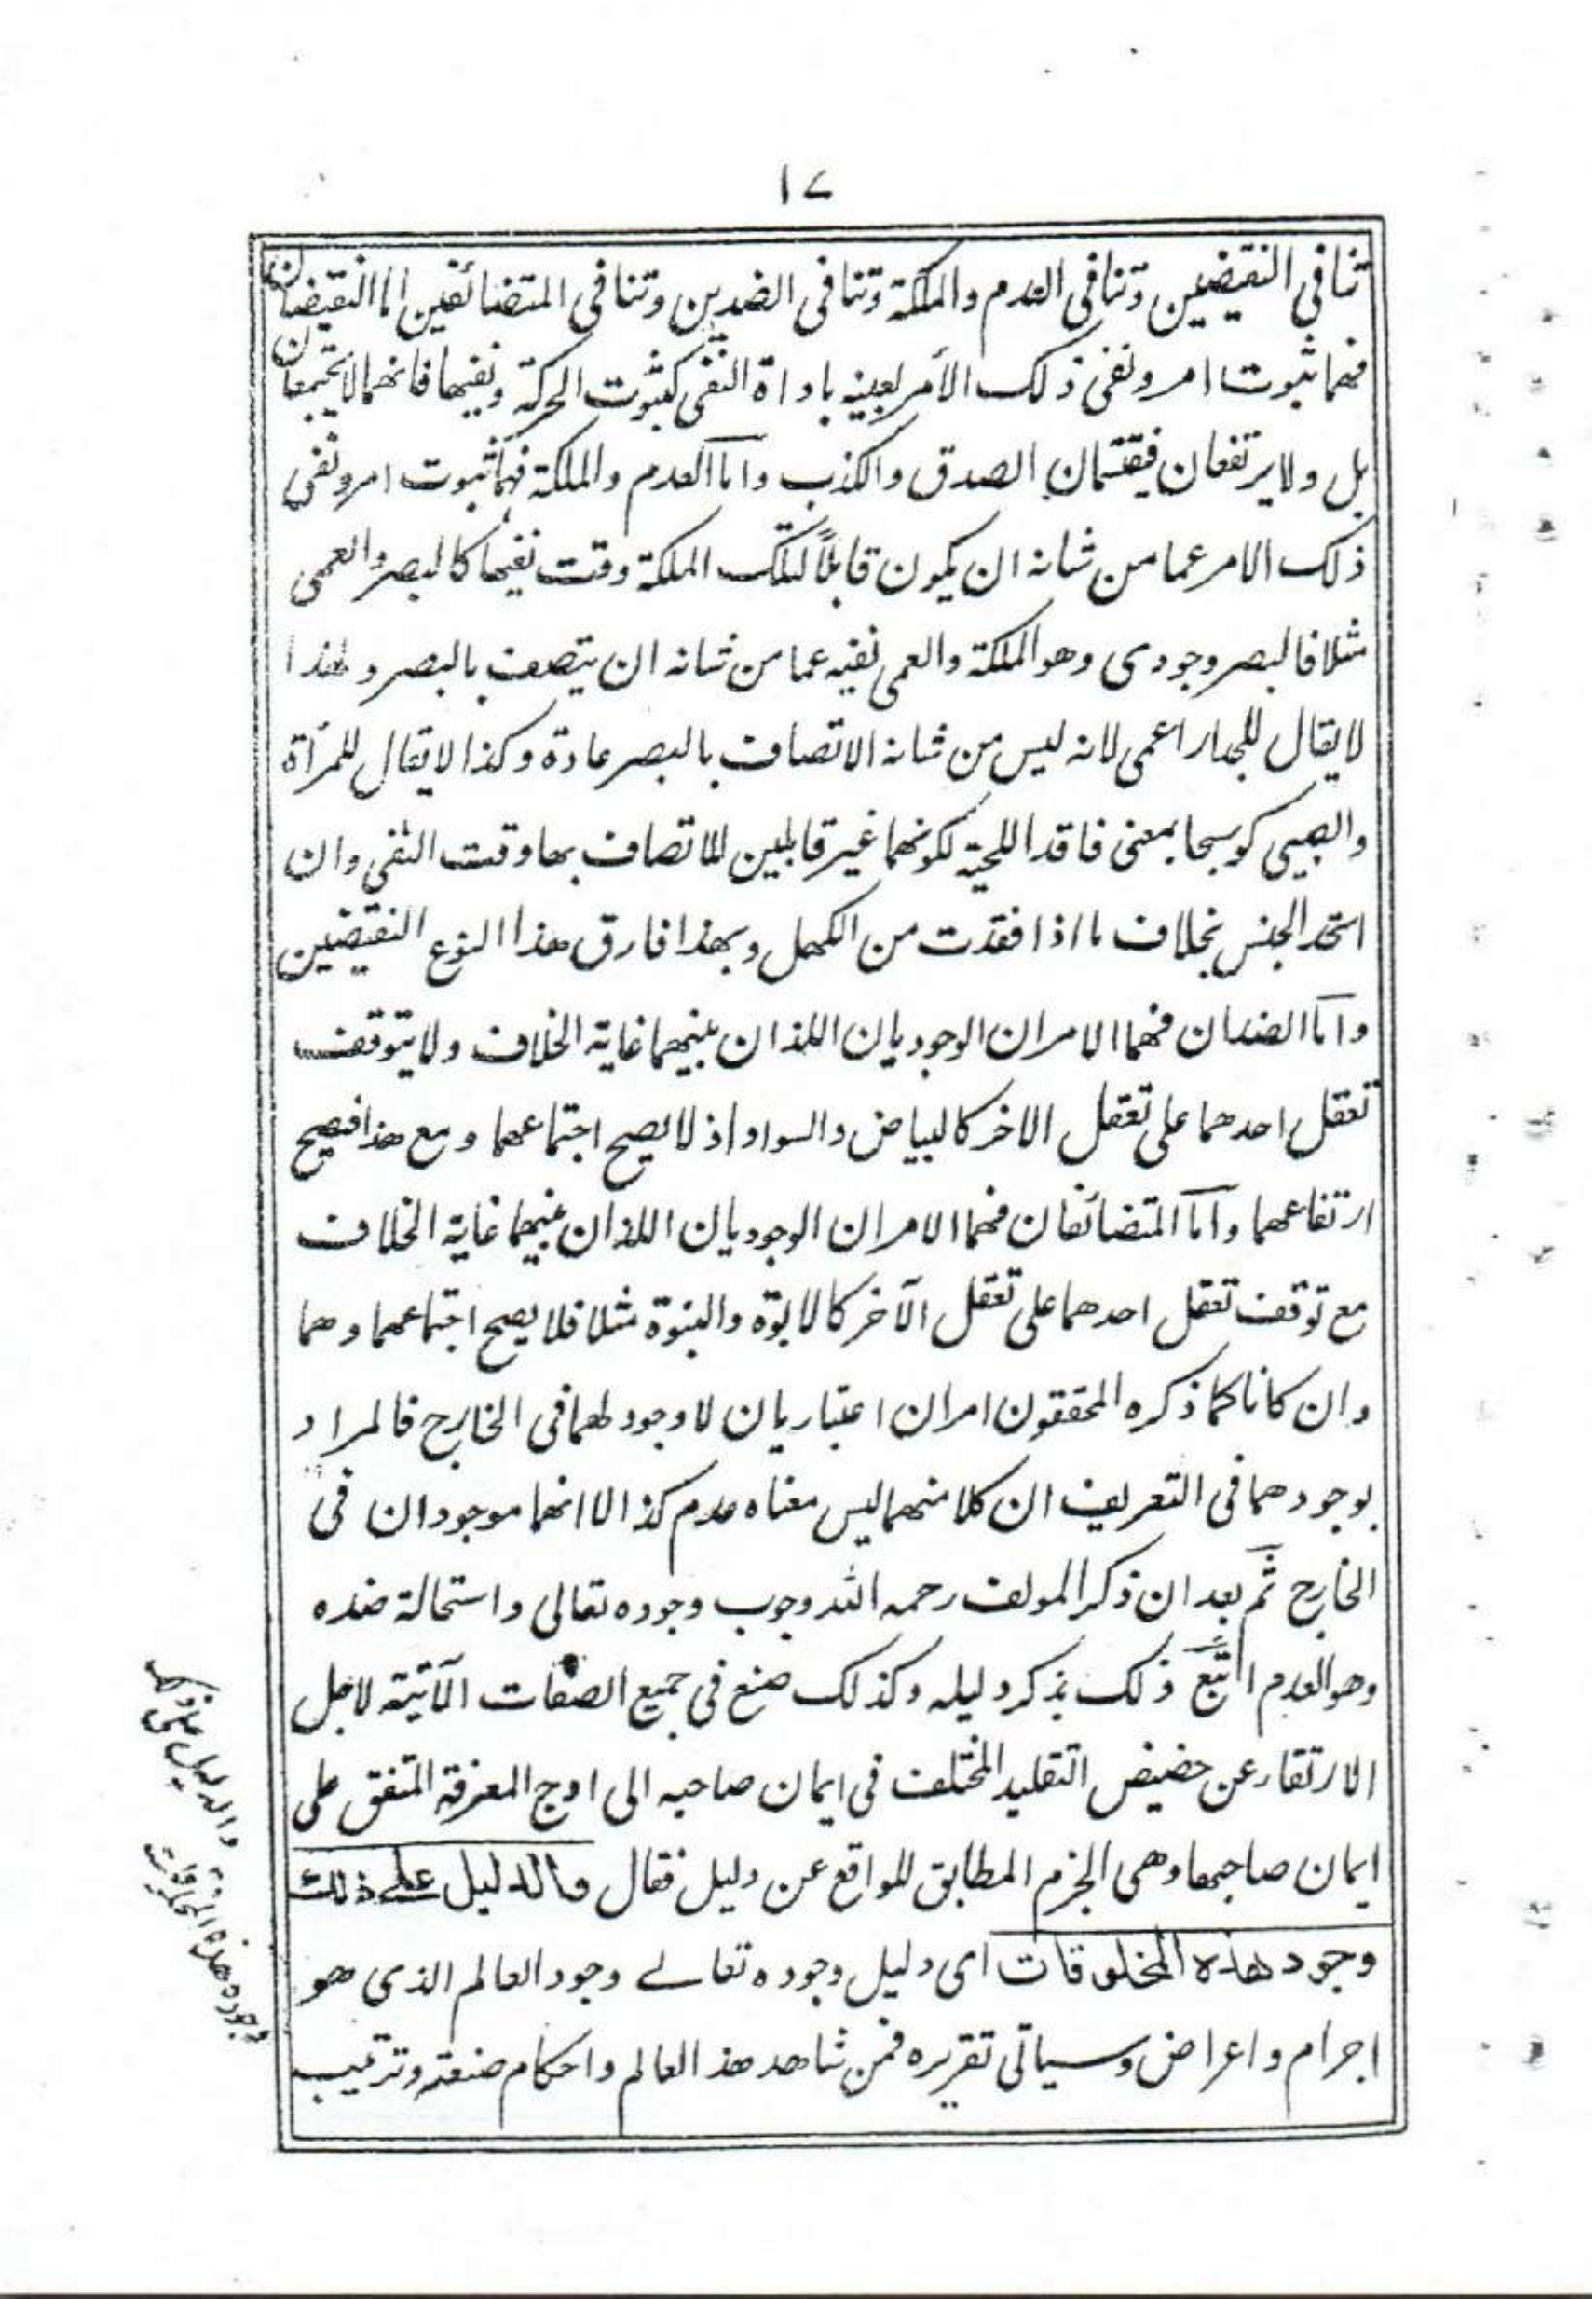 ١٧
تنافى النقيضين وتنافى العدم والملكة وتنافى الضدين وتنافى المتضائفين اما النقيضان
فهما ثبوت امر ونفى ذلك الأمر بعينه باداة النفى كثبوت الحركة ونفيها فانهما لا يجتمعان
بل ولا يرتفعان فيقتسمان الصدق والكذب وامّا العدم والملكة فهما ثبوت امر ونفى
ذلك الامر عما من شانه ان يكون قابلاً لتلك الملكة وقت نفيها كالبصر والعمى
مثلا فالبصر وجودى وهو الملكة والعمى نفيه عما من شانه ان يتصف بالبصر ولهذا
لا يقال للجدار اعمى لانه ليس من شانه الاتصاف بالبصر عادة وكذا لا يقال للمرأة
والصبى كوسجا بمعنى فاقد اللحية لكونهما غير قابلين للاتصاف بها وقت النفى وان
اتحد الجنس بخلاف ما اذا فقدت من الكهل وبهذا فارق هذا النوع النقيضين
وامّا الضدان فهما الامران الوجوديان اللذان بينهما غاية الخلاف ولا يتوقف
تعقل احدهما على تعقل الاخر كالبياض والسواد اذ لا يصح اجتماعهما ومع هذا فيصح
ارتفاعهما وامّا المتضائفان فهما الامران الوجوديان اللذان بينهما غاية الخلاف
مع توقف تعقل احدهما على تعقل الآخر كالابوّة والبنوة مثلا فلا يصح اجتماعهما وهما
وان كانا كما ذكره المحققون امران اعتباريان لا وجود لهما فى الخارج فالمراد
بوجودهما فى التعريف ان كلا منهما ليس معناه عدم كذا لا انهما موجودان فى
الخارج ثمّ بعد ان ذكر المولف رحمه الله وجوب وجوده تعالى واستحالة ضده
وهو العدم اتبع ذلك بذكر دليله وكذلك صنع فى جميع الصفات الآتية لاجل
الارتقاء عن حضيض التقليد المختلف فى ايمان صاحبه الى اوج المعرفة المتفق على
ايمان صاحبها وهى الجزم المطابق للواقع عن دليل فقال والدليل على ذلك
وجود هذه المخلوقات اى دليل وجوده تعالى وجود العالم الذى هو
اجرام واعراض وسياتى تقريره فمن شاهد هذ العالم واحكام صنعته وترتيب
والدليل على ذلك
وجود هذه المخلوقات